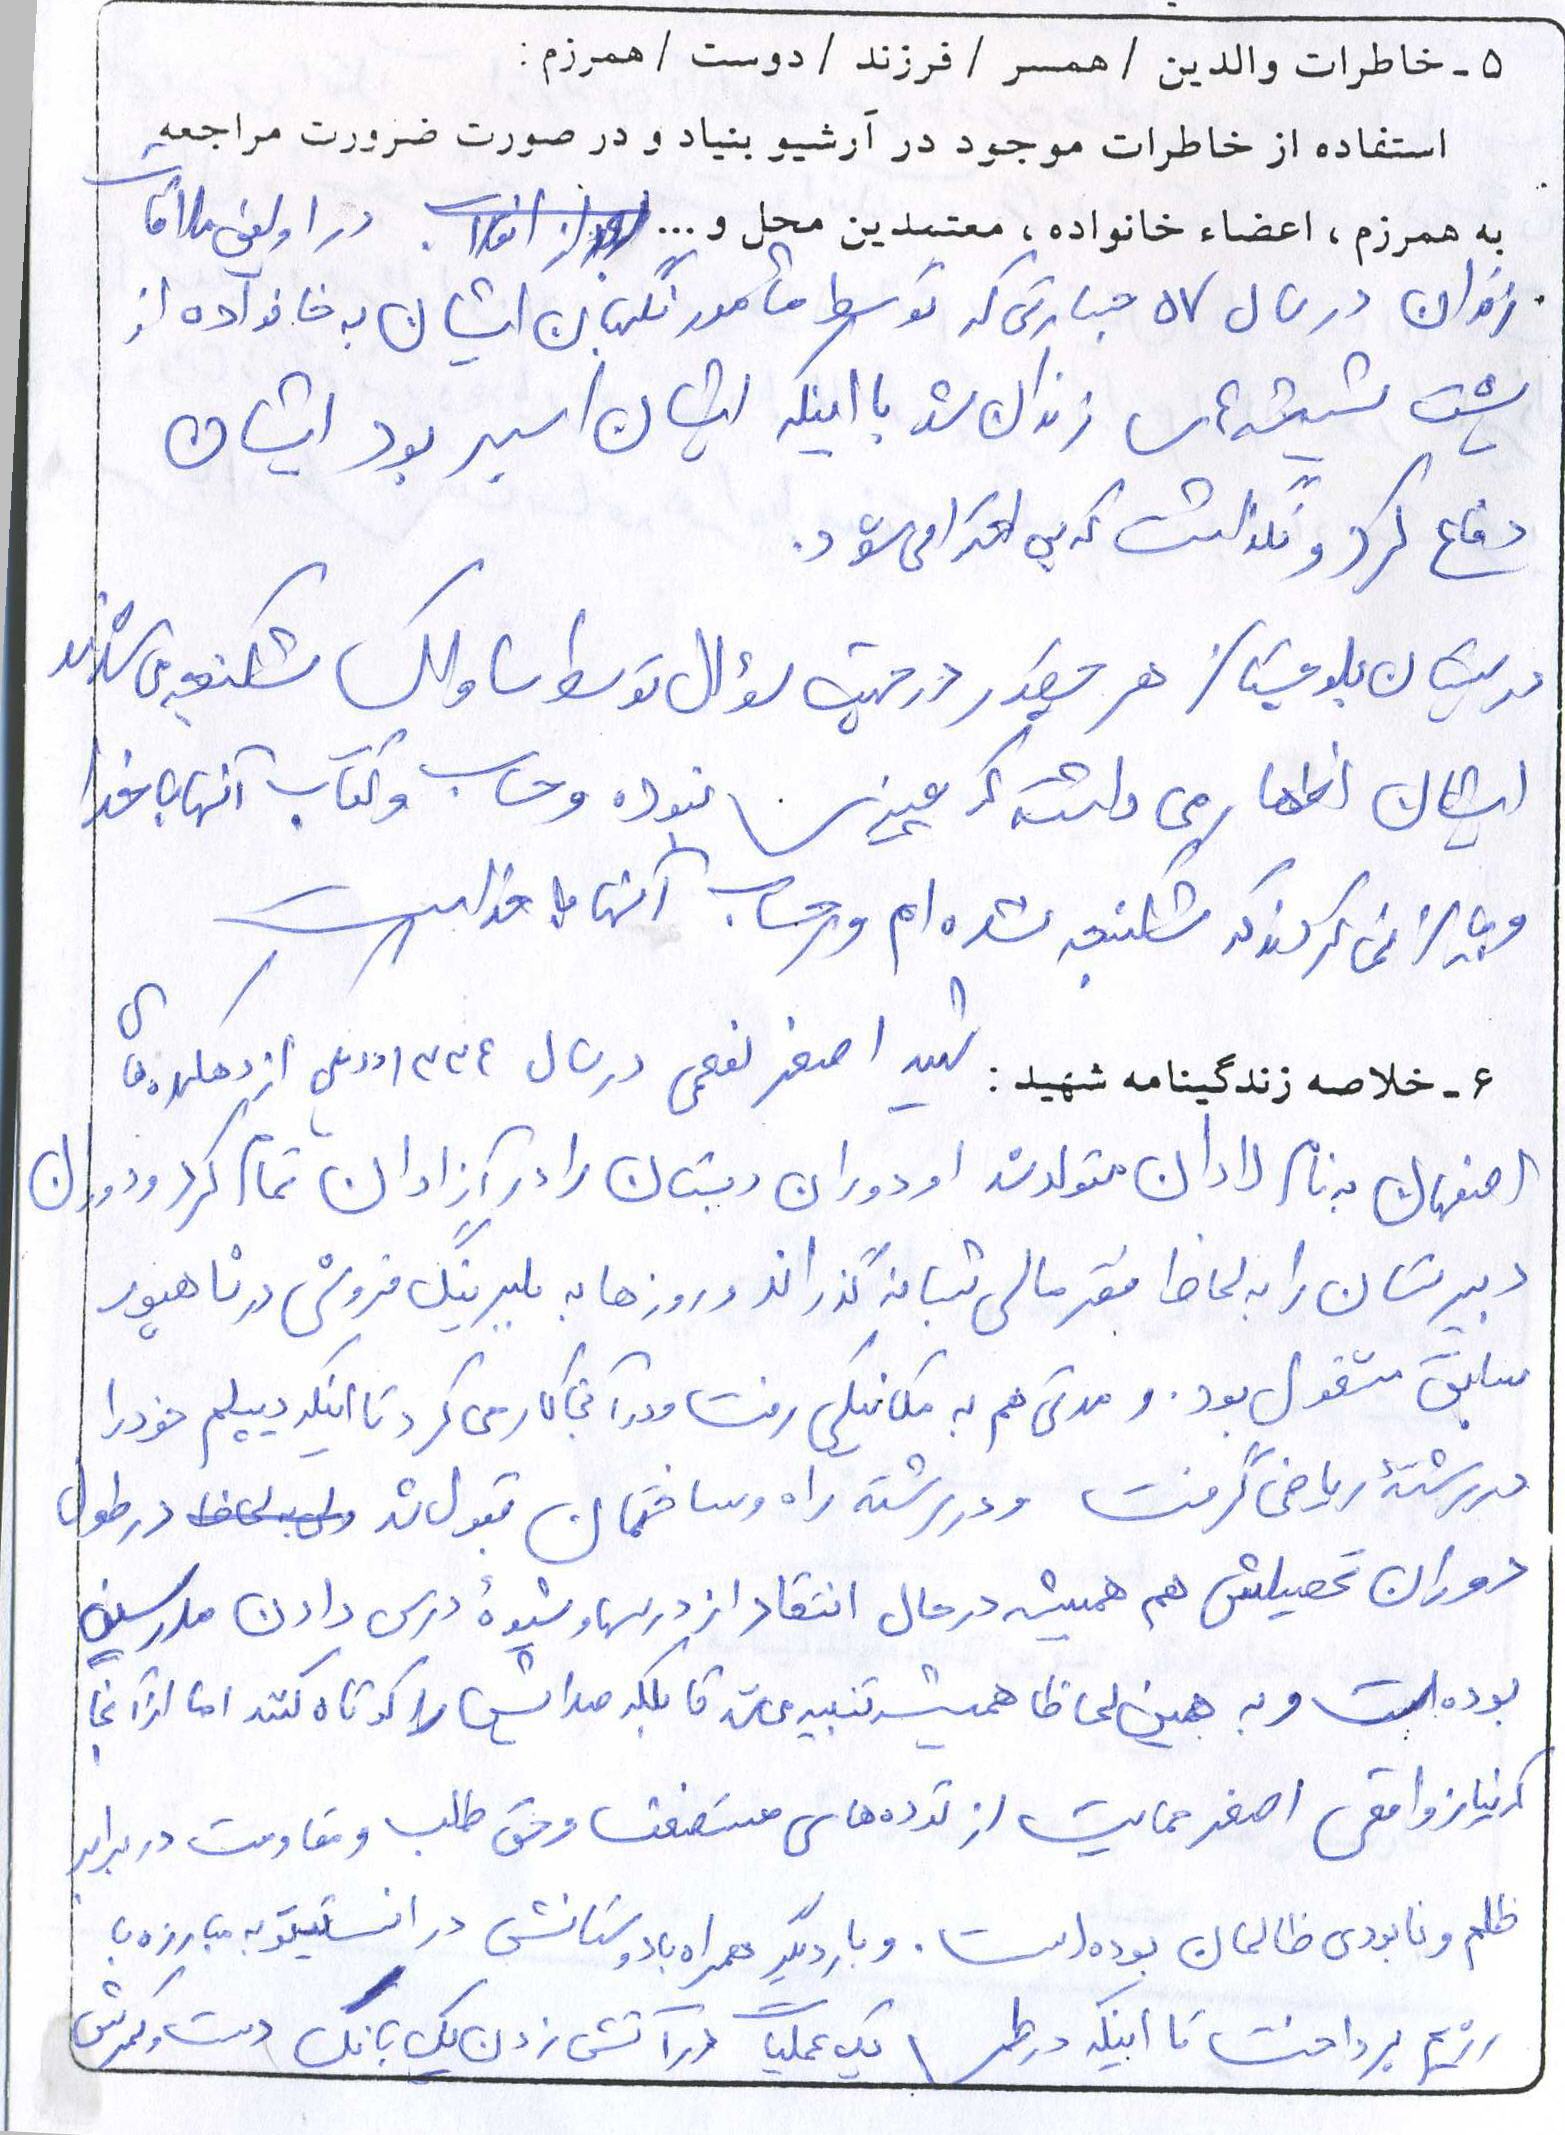 ۵ـ خاطرات والدین / همسر / فرزند / دوست / همرزم :
استفاده از خاطرات موجود در آرشیو بنیاد و در صورت ضرورت مراجعه
به همرزم ، اعضاء خانواده ، معتمدین محل و ... در اولین ملاقات
زندان در سال ۵۷ جسارتی که توسط مأمور نگهبان ایشان به خانواده از
پشت شیشه‌های زندان شد با اینکه ایشان اسیر بود ایشان
دفاع کرد و نگذاشت که بی احترامی شود.
در سیستان بلوچستان هر چقدر در جهت سؤال توسط ساواک شکنجه می‌شدند
ایشان اظهار می داشته که چیزی نبوده و حساب و کتاب آنها با خدا
و ابراز نمی کردند که شکنجه شده ام و حساب آنها با خداست
۶ـ خلاصه زندگینامه شهید : شهید اصغر نعمی در سال ۱۳۳۴ در یکی از دهکده‌های
اصفهان به نام رادان متولد شد او دوران دبستان را در رادان تمام کرد و دوران
دبیرستان را به لحاظ فقر مالی شبانه گذراند و روزها به بلبرینگ فروشی در شاهپور
سابق مشغول بود. و مدتی هم به مکانیکی رفت و در آنجا کار می کرد تا اینکه دیپلم خود را
در رشتهٔ ریاضی گرفت و در رشته راه و ساختمان قبول شد در طول
دوران تحصیلش هم همیشه در حال انتقاد از درسها و شیوهٔ درس دادن مدرسین
بوده است و به همین لحاظ همیشه تنبیه می شد تا بلکه صدایش را کوتاه کنند اما از آنجا
که نیاز واقعی اصغر حمایت از توده‌های مستضعف و حق طلب و مقاومت در برابر
ظلم و نابودی ظالمان بوده است. و بار دیگر همراه با دوستانش در انستیتو به مبارزه با
رژیم پرداخت تا اینکه در طی یک عملیات در آتش زدن یک بانک دست و کمرش